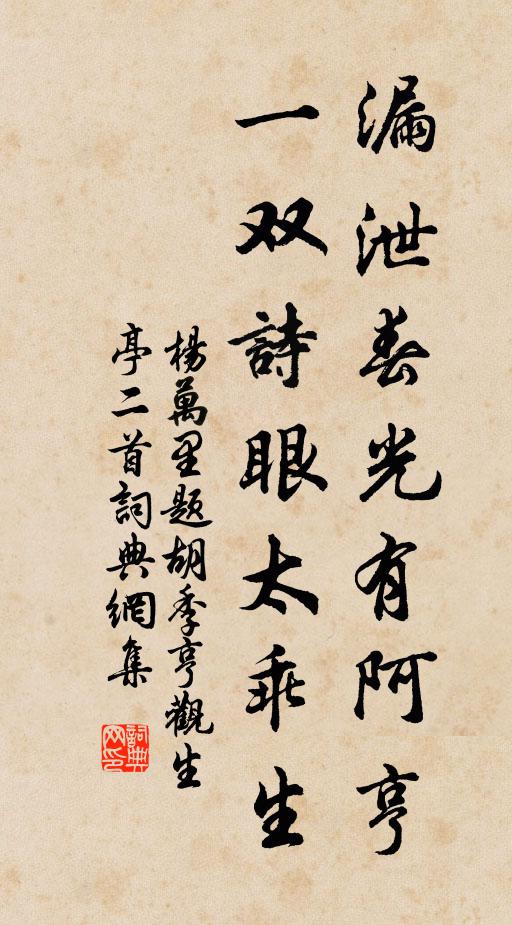 漏泄春光有阿亨
一双詩眼太乖生
楊萬里题胡季亨觀生
亭二首詞典網集
詞典网印